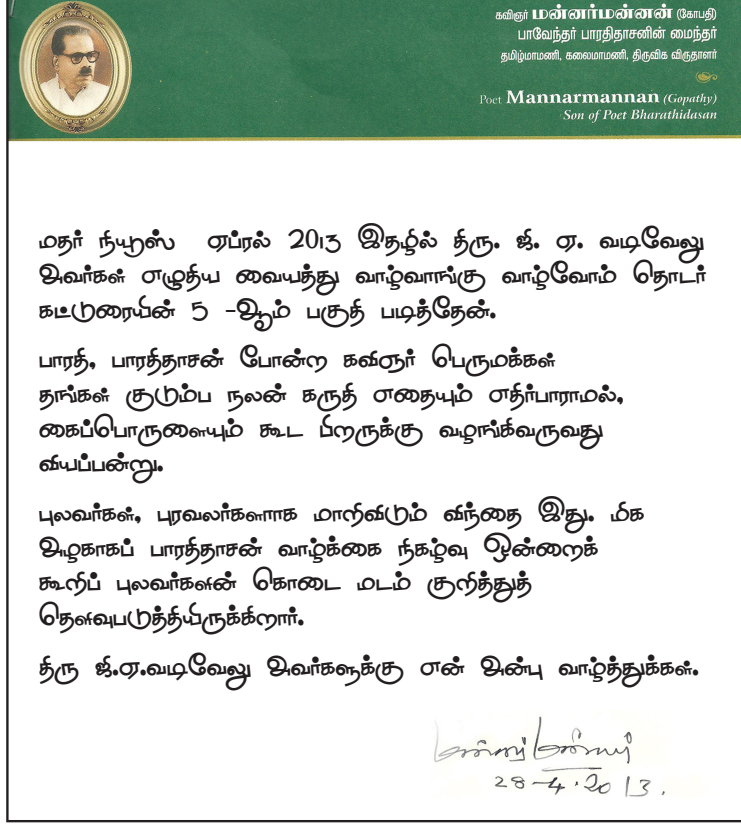 கவிஞர் மன்னர்மன்னன் (கோபதி)
பாவேந்தர் பாரதிதாசனின் மைந்தர்
தமிழ்மாமணி, கலைமாமணி, திருவிக விருதாளர்
Poet Mannarmannan (Gopathy)
Son of Poet Bharathidasan
மதர் நியூஸ் ஏப்ரல் 2013 இதழில் திரு. ஜி. ஏ. வடிவேலு
அவர்கள் எழுதிய வையத்து வாழ்வாங்கு வாழ்வோம் தொடர்
கட்டுரையின் 5 -ஆம் பகுதி படித்தேன்.
பாரதி, பாரதிதாசன் போன்ற கவிஞர் பெருமக்கள்
தங்கள் குடும்ப நலன் கருதி எதையும் எதிர்பாராமல்,
கைப்பொருளையும் கூட பிறருக்கு வழங்கிவருவது
வியப்பன்று.
புலவர்கள், புரவலர்களாக மாறிவிடும் விந்தை இது. மிக
அழகாகப் பாரதிதாசன் வாழ்க்கை நிகழ்வு ஒன்றைக்
கூறிப் புலவர்களன் கொடை மடம் குறித்துத்
தெளவுபடுத்தியிருக்கிறார்.
திரு ஜி.ஏ.வடிவேலு அவர்களுக்கு என் அன்பு வாழ்த்துக்கள்.
மன்னர் மன்னன்
28-4-2013.